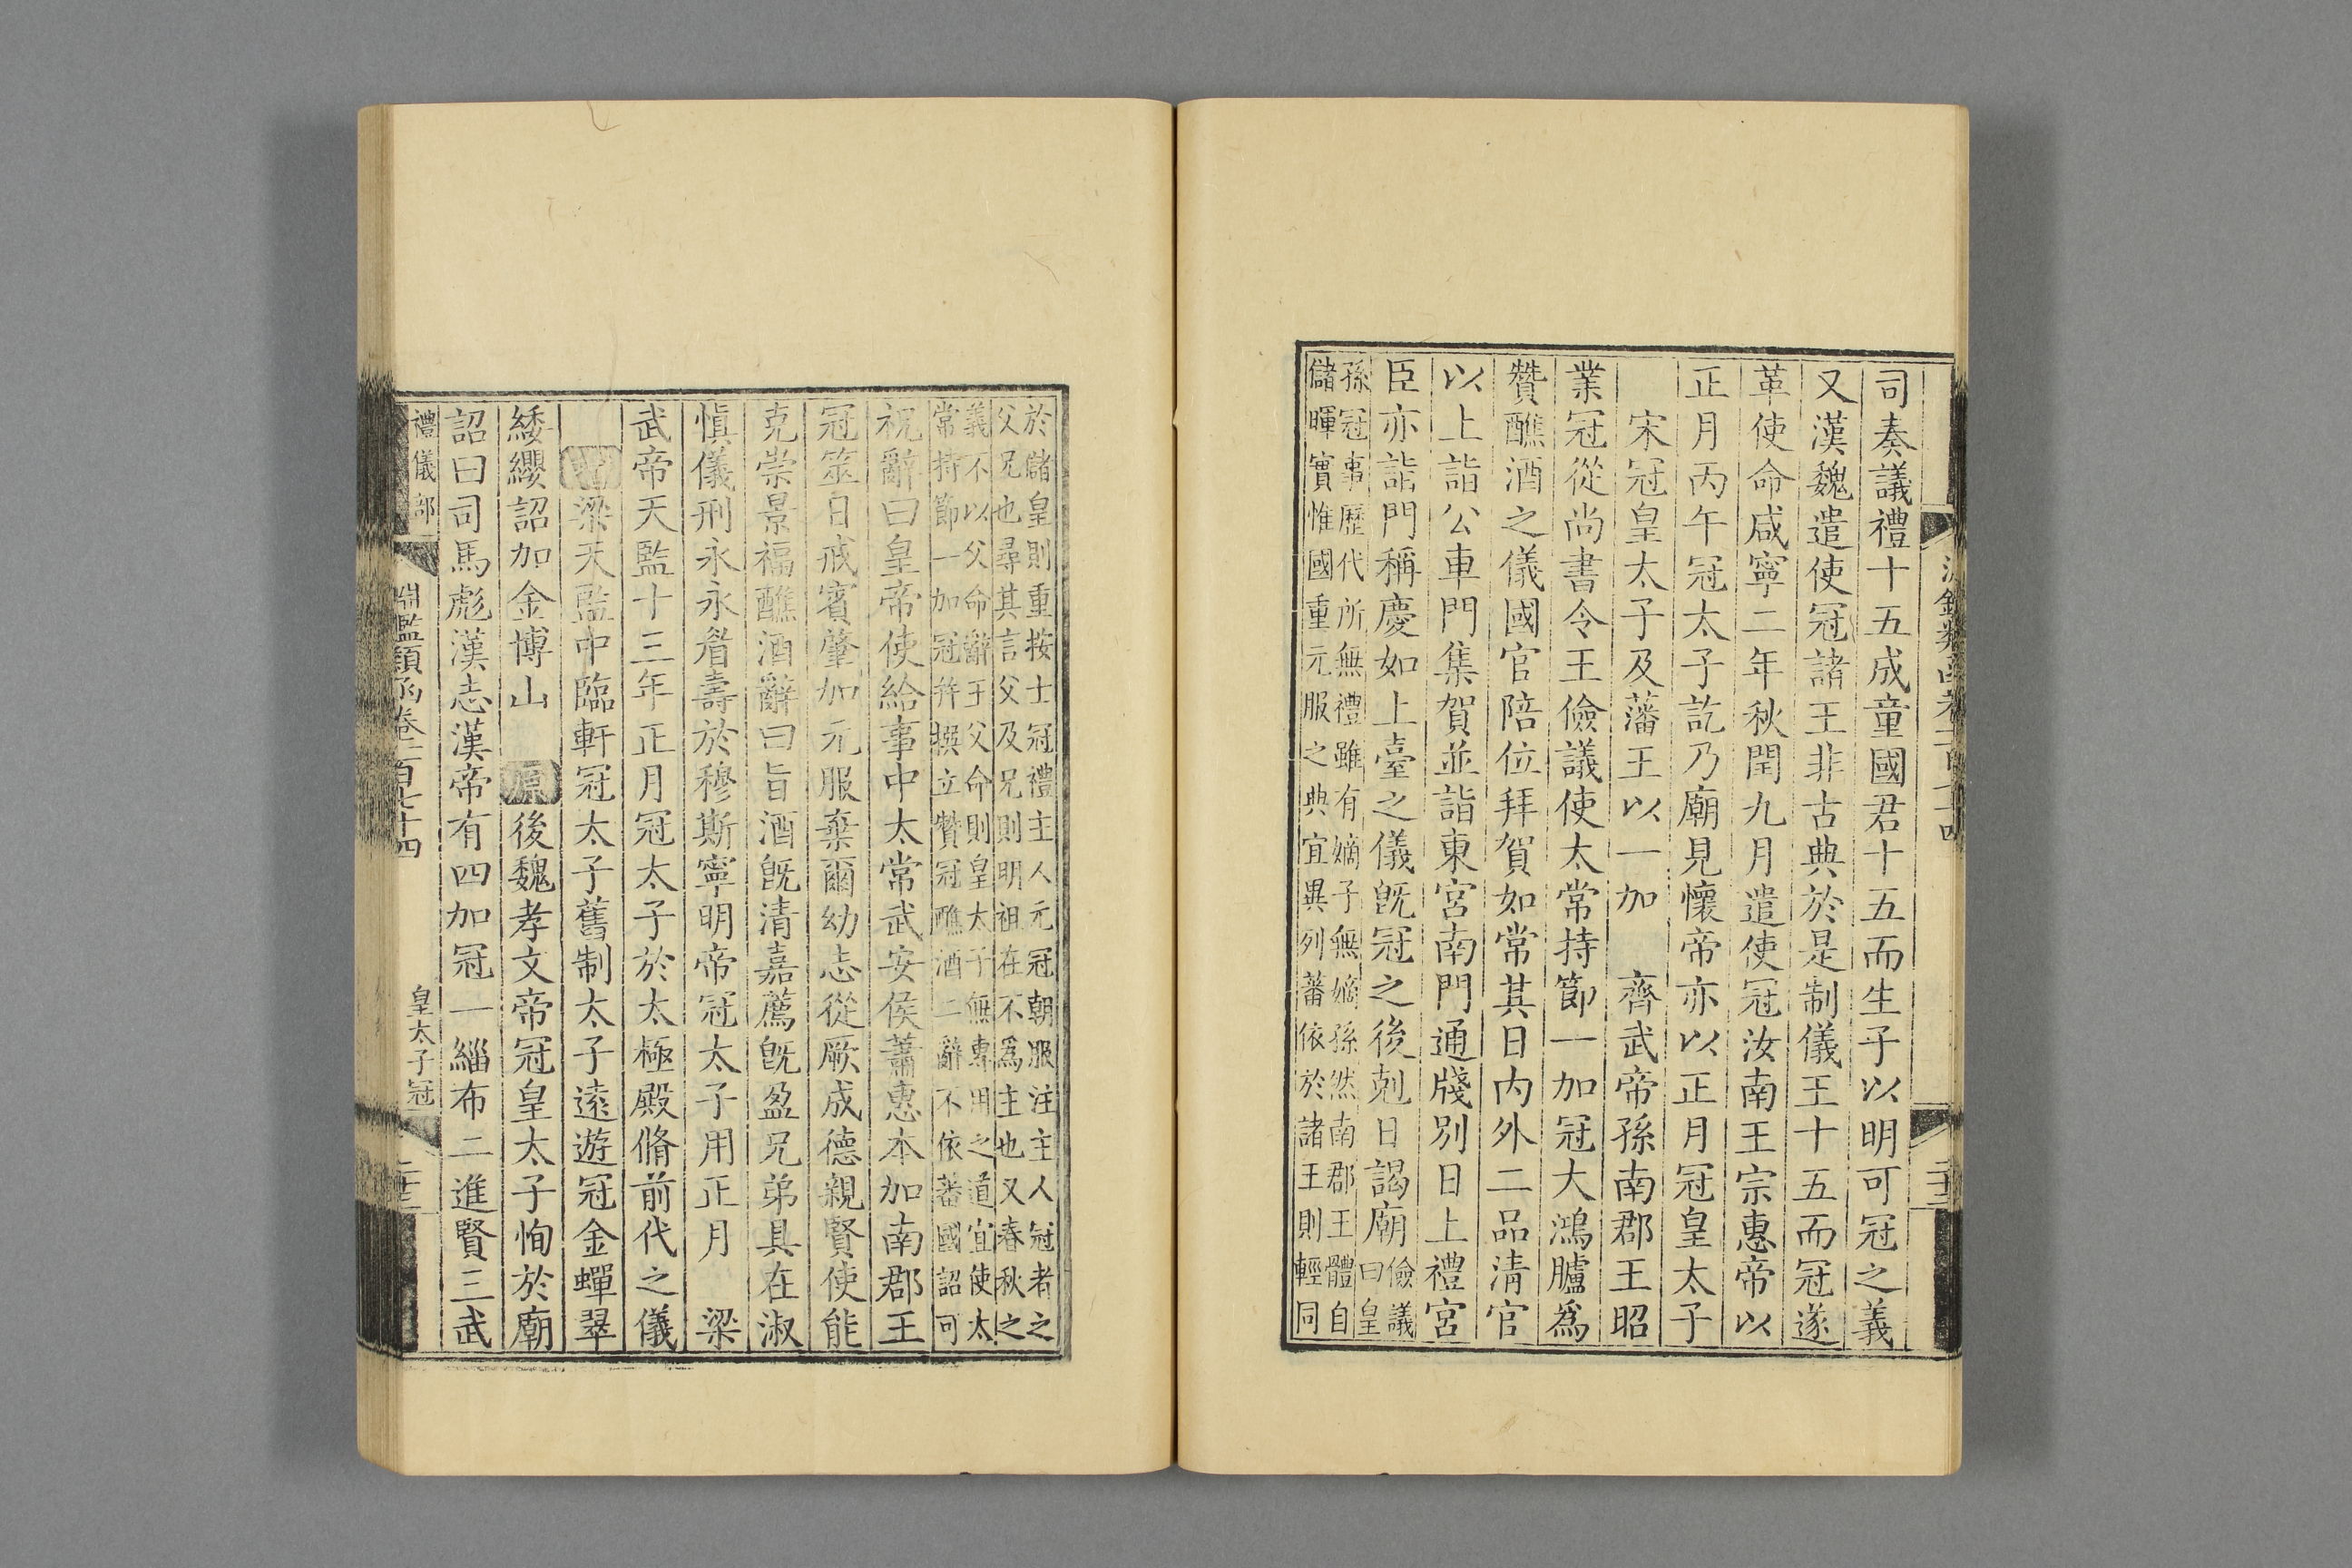 司奏議禮十五成童國君十五而生子以明可冠之義
又漢魏遣使冠諸王非古典於是制儀王十五而冠遂
革使命咸寧二年秋閏九月遣使冠汝南王宗惠帝以
正月丙午冠太子訖乃廟見懷帝亦以正月冠皇太子
宋冠皇太子及藩王以一加　齊武帝孫南郡王昭
業冠從尚書令王儉議使太常持節一加冠大鴻臚爲
贊醮酒之儀國官陪位拜賀如常其日内外二品清官
以上詣公車門集賀並詣東宮南門通牋別日上禮宮
臣亦詣門稱慶如上臺之儀旣冠之後剋日謁廟儉議
曰皇
孫冠事歷代所無禮雖有嫡子無嫡孫然南郡王體自
儲暉實惟國重元服之典宜異列蕃依於諸王則輕同
於儲皇則重按士冠禮主人元冠朝服注主人冠者之
父兄也尋其言父及兄則明祖在不爲主也又春秋之
義不以父命辭王父命則皇太子無專用之道宜使太
常持節一加冠并撰立贊冠醮酒二辭不依蕃國詔可
祝辭曰皇帝使給事中太常武安侯蕭惠本加南郡王
冠筮日戒賓肇加元服棄爾幼志從厥成德親賢使能
克崇景福醮酒辭曰旨酒旣清嘉薦旣盈兄弟具在淑
慎儀刑永永眉壽於穆斯寧明帝冠太子用正月　梁
武帝天監十三年正月冠太子於太極殿脩前代之儀
梁天監中臨軒冠太子舊制太子遠遊冠金蟬翠
緌纓詔加金博山　原後魏孝文帝冠皇太子恂於廟
詔曰司馬彪漢志漢帝有四加冠一緇布二進賢三武
禮儀部　淵鑑類函卷一百七十四　皇太子冠　二十三